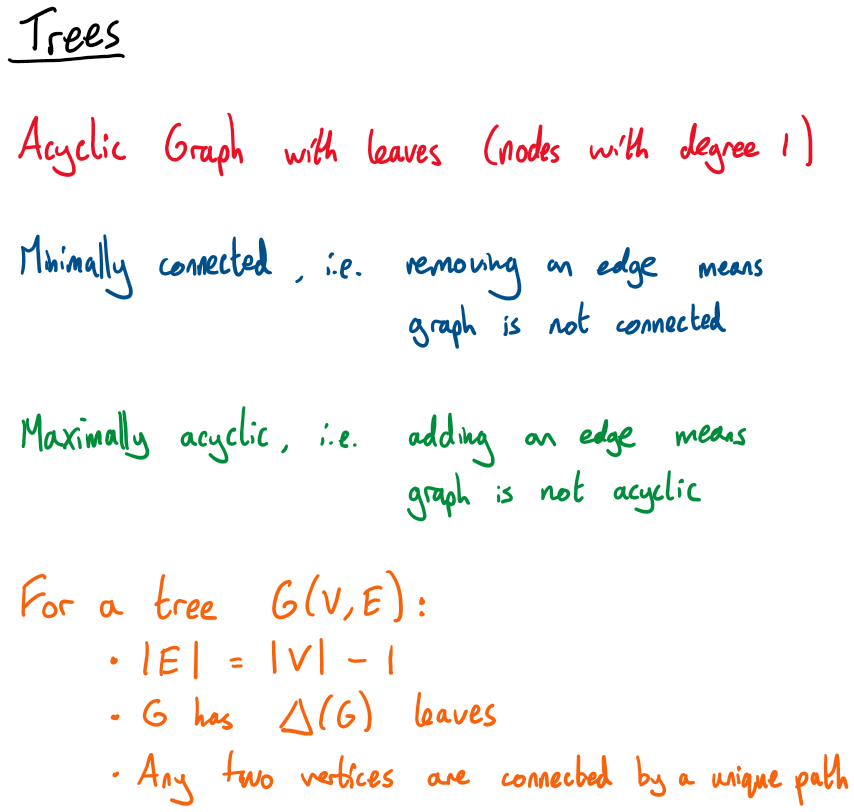 Trees
Acyclic Graph with leaves (nodes with degree 1)
Minimally connected, i.e. removing an edge means
graph is not connected
Maximally acyclic, i.e. adding an edge means
graph is not acyclic
For a tree G(V,E):
• |E| = |V| - 1
• G has Δ(G) leaves
• Any two vertices are connected by a unique path